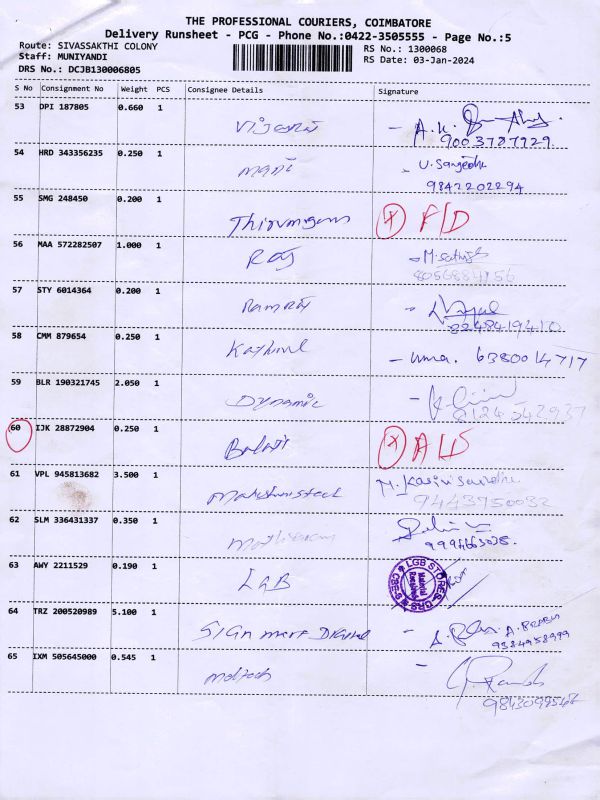 THE PROFESSIONAL COURIERS, COIMBATORE
Delivery Runsheet - PCG - Phone No.:0422-3505555 - Page No.:5
Route: SIVASSAKTHI COLONY RS No.: 1300068
Staff: MUNIYANDI RS Date: 03-Jan-2024
DRS No.: DCJB130006805
S No Consignment No Weight PCS Consignee Details Signature
53 DPI 187805 0.660 1
9003787929
54 HRD 343356235 0.250 1 mani
9842202294
55 SMG 248450 0.200 1 F/D
56 MAA 572282507 1.000 1 Raj
8056884156
57 STY 6014364 0.200 1 Ramraj
58 CMM 879654 0.250 1 - uma. 6380014717
59 BLR 190321745 2.050 1 Dynamic
60 IJK 28872904 0.250 1 Balaji
61 VPL 945813682 3.500 1
62 SLM 336431337 0.350 1
63 AWY 2211529 0.190 1 LGB LGB STORES
64 TRZ 200520989 5.100 1 Sign mart Digital
9384958999
65 IXM 505645000 0.545 1 meltech